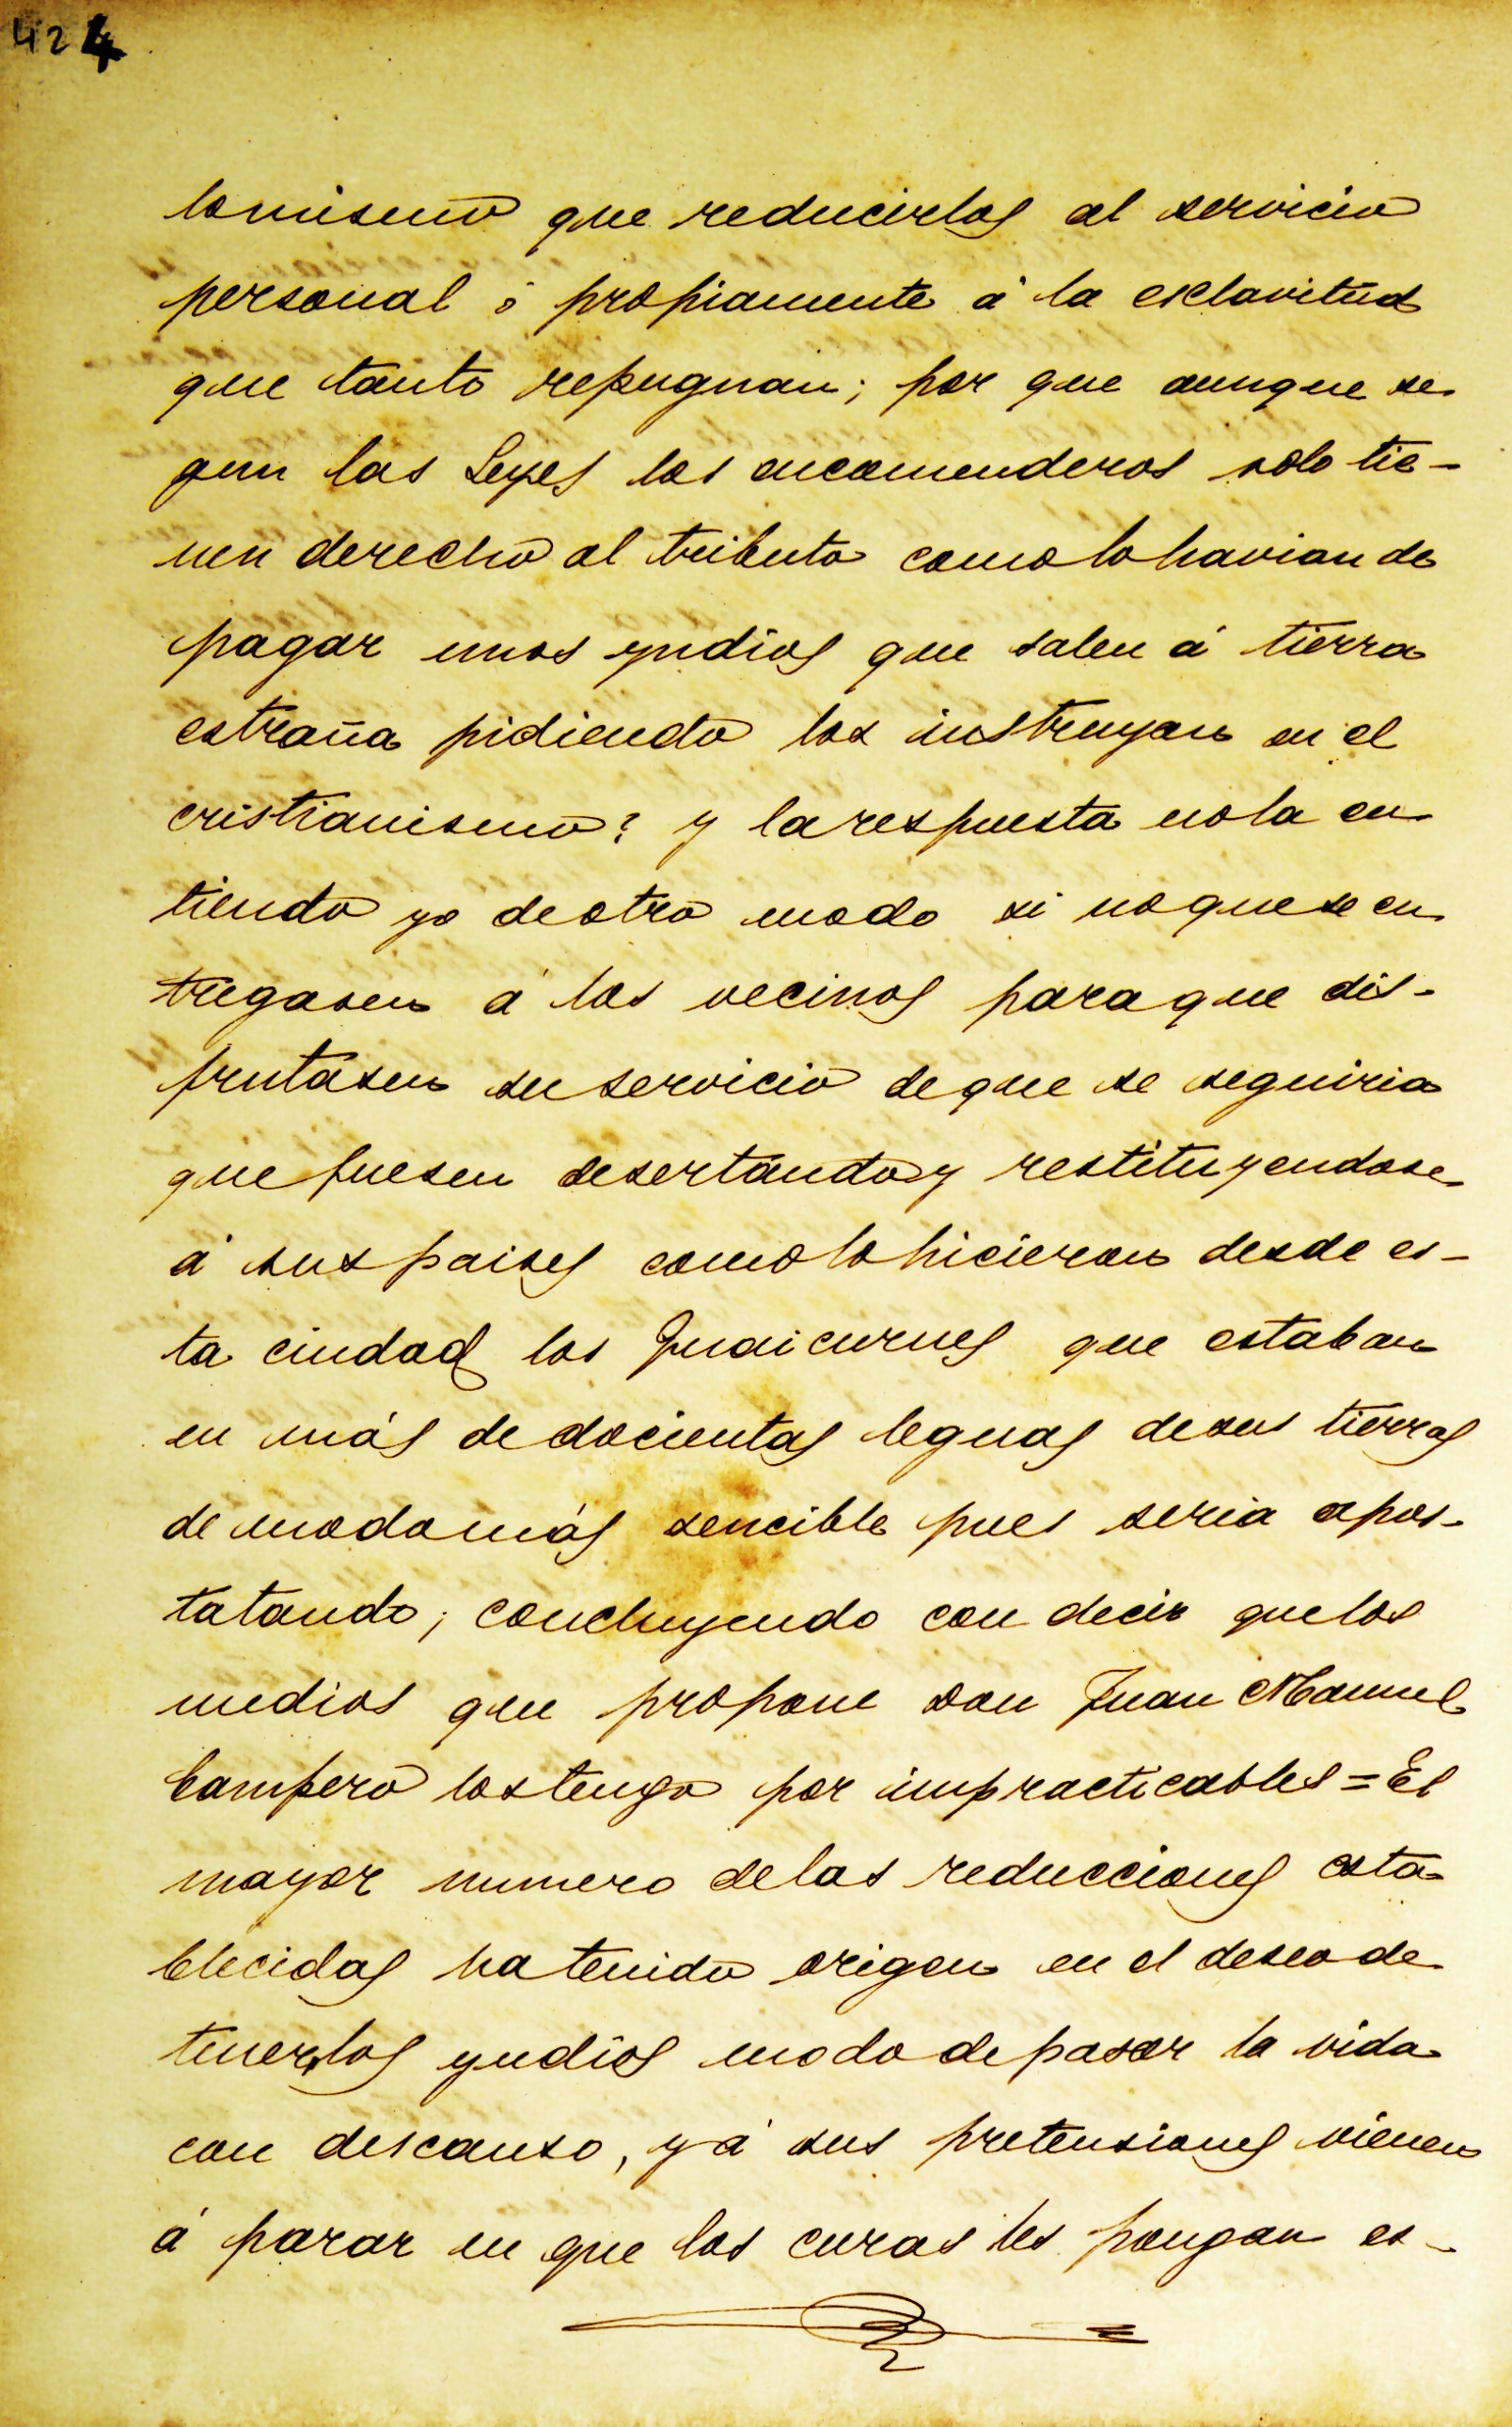 424
lomismo que reducirlos al servicio
personal ó propiamente á la esclavitud
que tanto repugnan; por que aunque se-
gun las Leyes los encomenderos solo tie-
nen derecho al tributo como lo havian de
pagar unos yndios que salen á tierra
estraña pidiendo los instruyan en el
cristianismo? y la respuesta no la en-
tiendo yo de otro modo si no que se en-
tregasen á los vecinos para que dis-
frutasen su servicio de que se seguiria
que fuesen desertando y restituyendose
á sus paises como lo hicieron desde es-
ta ciudad los Guaicurues que estaban
en más de docientas leguas de sus tierras
de modo más sencible pues seria apos-
tatando; concluyendo con decir que los
medios que propone don Juan Manuel
Campero los tengo por impracticables = El
mayor numero de las reducciones esta-
blecidas ha tenido origen en el deseo de
tener los yndios modo de pasar la vida
con descanso, y á sus pretensiones vienen
á parar en que los curas les pongan es-